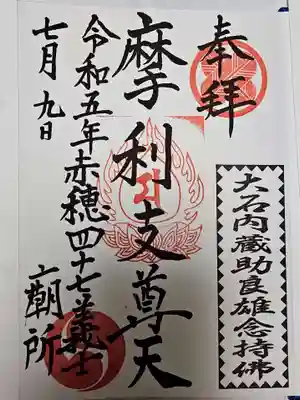 奉拝
大石内蔵助良雄念持佛
摩利支尊天
令和五年赤穂四十七義士
七月九日
霊所